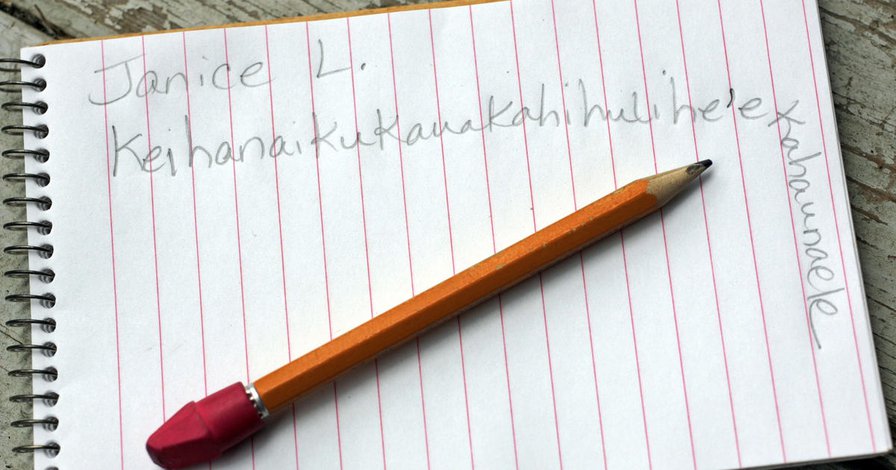 Janice L.
Keihanaikukauakahihulihe'e
kahaunaele